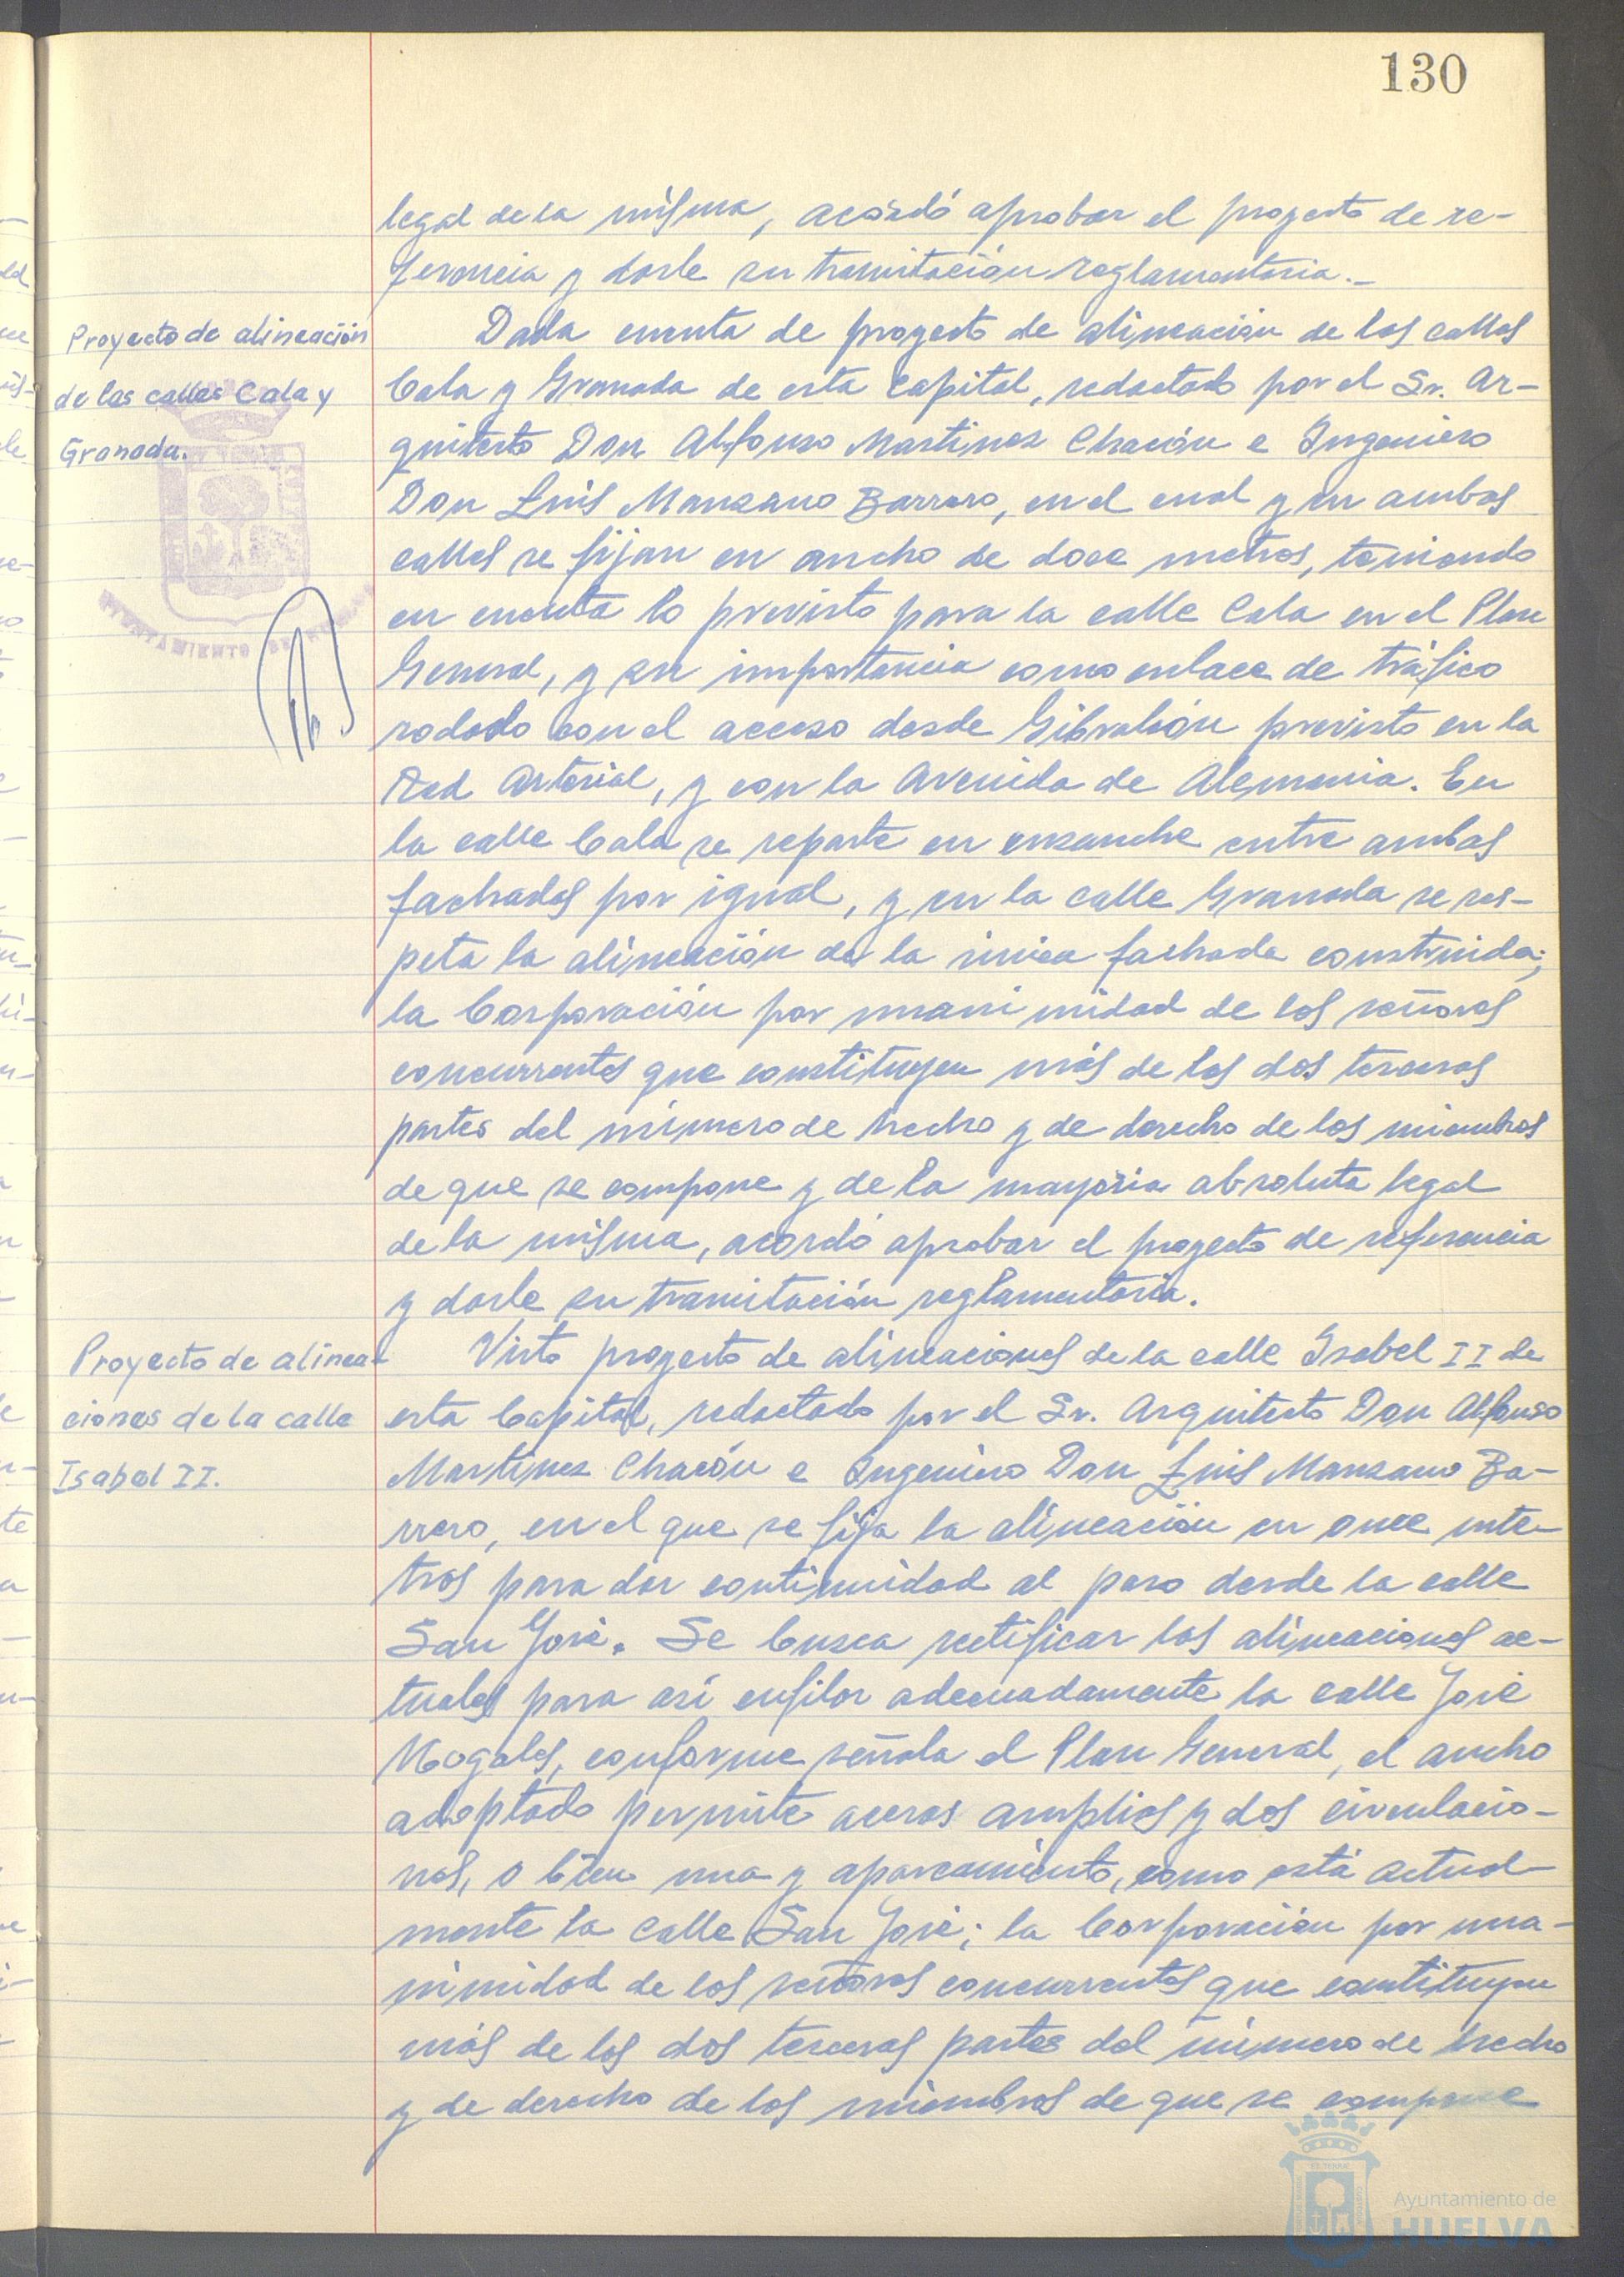 130
legal de la misma, acordó aprobar el proyecto de re-
ferencia y darle su tramitación reglamentaria.-
Proyecto de alineación
de las calles Cala y
Granada.
Dada cuenta de proyecto de alineación de las calles
Cala y Granada de esta capital, redactado por el Sr. Ar-
quitecto Don Alfonso Martinez Chacón e Ingeniero
Don Luis Manzano Barrero, en el cual y en ambas
calles se fijan en ancho de doce metros, teniendo
en cuenta lo previsto para la calle Cala en el Plan
General, y su importancia como enlace de tráfico
rodado con el acceso desde Gibraleón previsto en la
Red Arterial, y con la Avenida de Alemania. En
la calle Cala se reparte en ensanche entre ambas
fachadas por igual, y en la calle Granada se res-
peta la alineación de la única fachada construida;
la Corporación por unanimidad de los señores
concurrentes que constituyen más de las dos terceras
partes del número de hecho y de derecho de los miembros
de que se compone y de la mayoría absoluta legal
de la misma, acordó aprobar el proyecto de referencia
y darle su tramitación reglamentaria.
Proyecto de alinea-
ciones de la calle
Isabel II.
Visto proyecto de alineaciones de la calle Isabel II de
esta Capital, redactado por el Sr. Arquitecto Don Alfonso
Martinez Chacón e Ingeniero Don Luis Manzano Ba-
rrero, en el que se fija la alineación en once me-
tros para dar continuidad al paso desde la calle
San José. Se busca rectificar las alineaciones ac-
tuales para así enfilar adecuadamente la calle José
Nogales, conforme señala el Plan General, el ancho
adoptado permite aceras amplias y dos circulacio-
nes, o bien una y aparcamiento, como está actual-
mente la calle San José; la Corporación por una-
nimidad de los señores concurrentes que constituyen
más de las dos terceras partes del número de hecho
y de derecho de los miembros de que se compone
AYUNTAMIENTO DE HUELVA
Ayuntamiento de
HUELVA